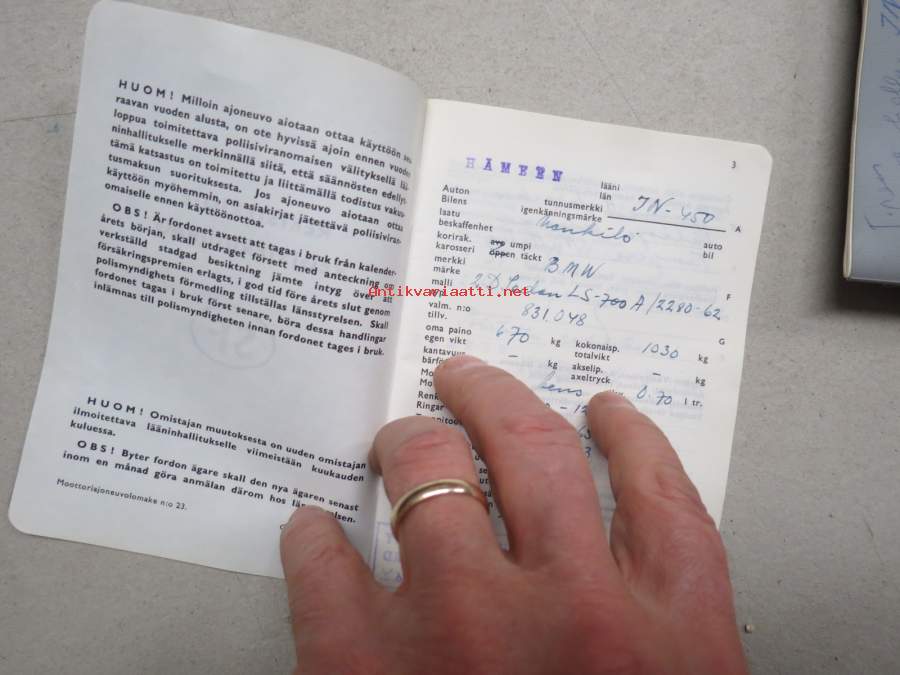 HUOM! Milloin ajoneuvo aiotaan ottaa käyttöön seu-
raavan vuoden alusta, on ote hyvissä ajoin ennen vuoden
loppua toimitettava poliisiviranomaisen välityksellä lää-
ninhallitukselle merkinnällä siitä, että säännösten edellyt-
tämä katsastus on toimitettu ja liittämällä todistus vakuu-
tusmaksun suorituksesta. Jos ajoneuvo aiotaan ottaa
käyttöön myöhemmin, on asiakirjat jätettävä poliisiviran-
omaiselle ennen käyttöönottoa.
OBS! Är fordonet avsett att tagas i bruk från kalender-
årets början, skall utdraget försett med anteckning om
verkställd stadgad besiktning jämte intyg över att
försäkringspremien erlagts, i god tid före årets slut genom
polismyndighets förmedling tillställas länsstyrelsen. Skall
fordonet tagas i bruk först senare, böra dessa handlingar
inlämnas till polismyndigheten innan fordonet tages i bruk.
HUOM! Omistajan muutoksesta on uuden omistajan
ilmoitettava lääninhallitukselle viimeistään kuukauden
kuluessa.
OBS! Byter fordon ägare skall den nya ägaren senast
inom en månad göra anmälan därom hos
Moottoriajoneuvolomake n:o 23.
3
HÄMEEN lääni
län
Auton tunnusmerkki IN-450
Bilens igenkänningsmärke A
laatu Henkilö auto
beskaffenhet bil
korirak. avo umpi
karosseri öppen täckt
merkki BMW
märke F
malli 2D Sedan LS-700 A/2280-62
valm. n:o 831.048 G
tillv.
oma paino 670 kg kokonaisp. 1030 kg
egen vikt totalvikt
kantavuus – kg akselip. – kg
axeltryck
bens 0.70 l tr.
Ringar
antikvariaatti.net